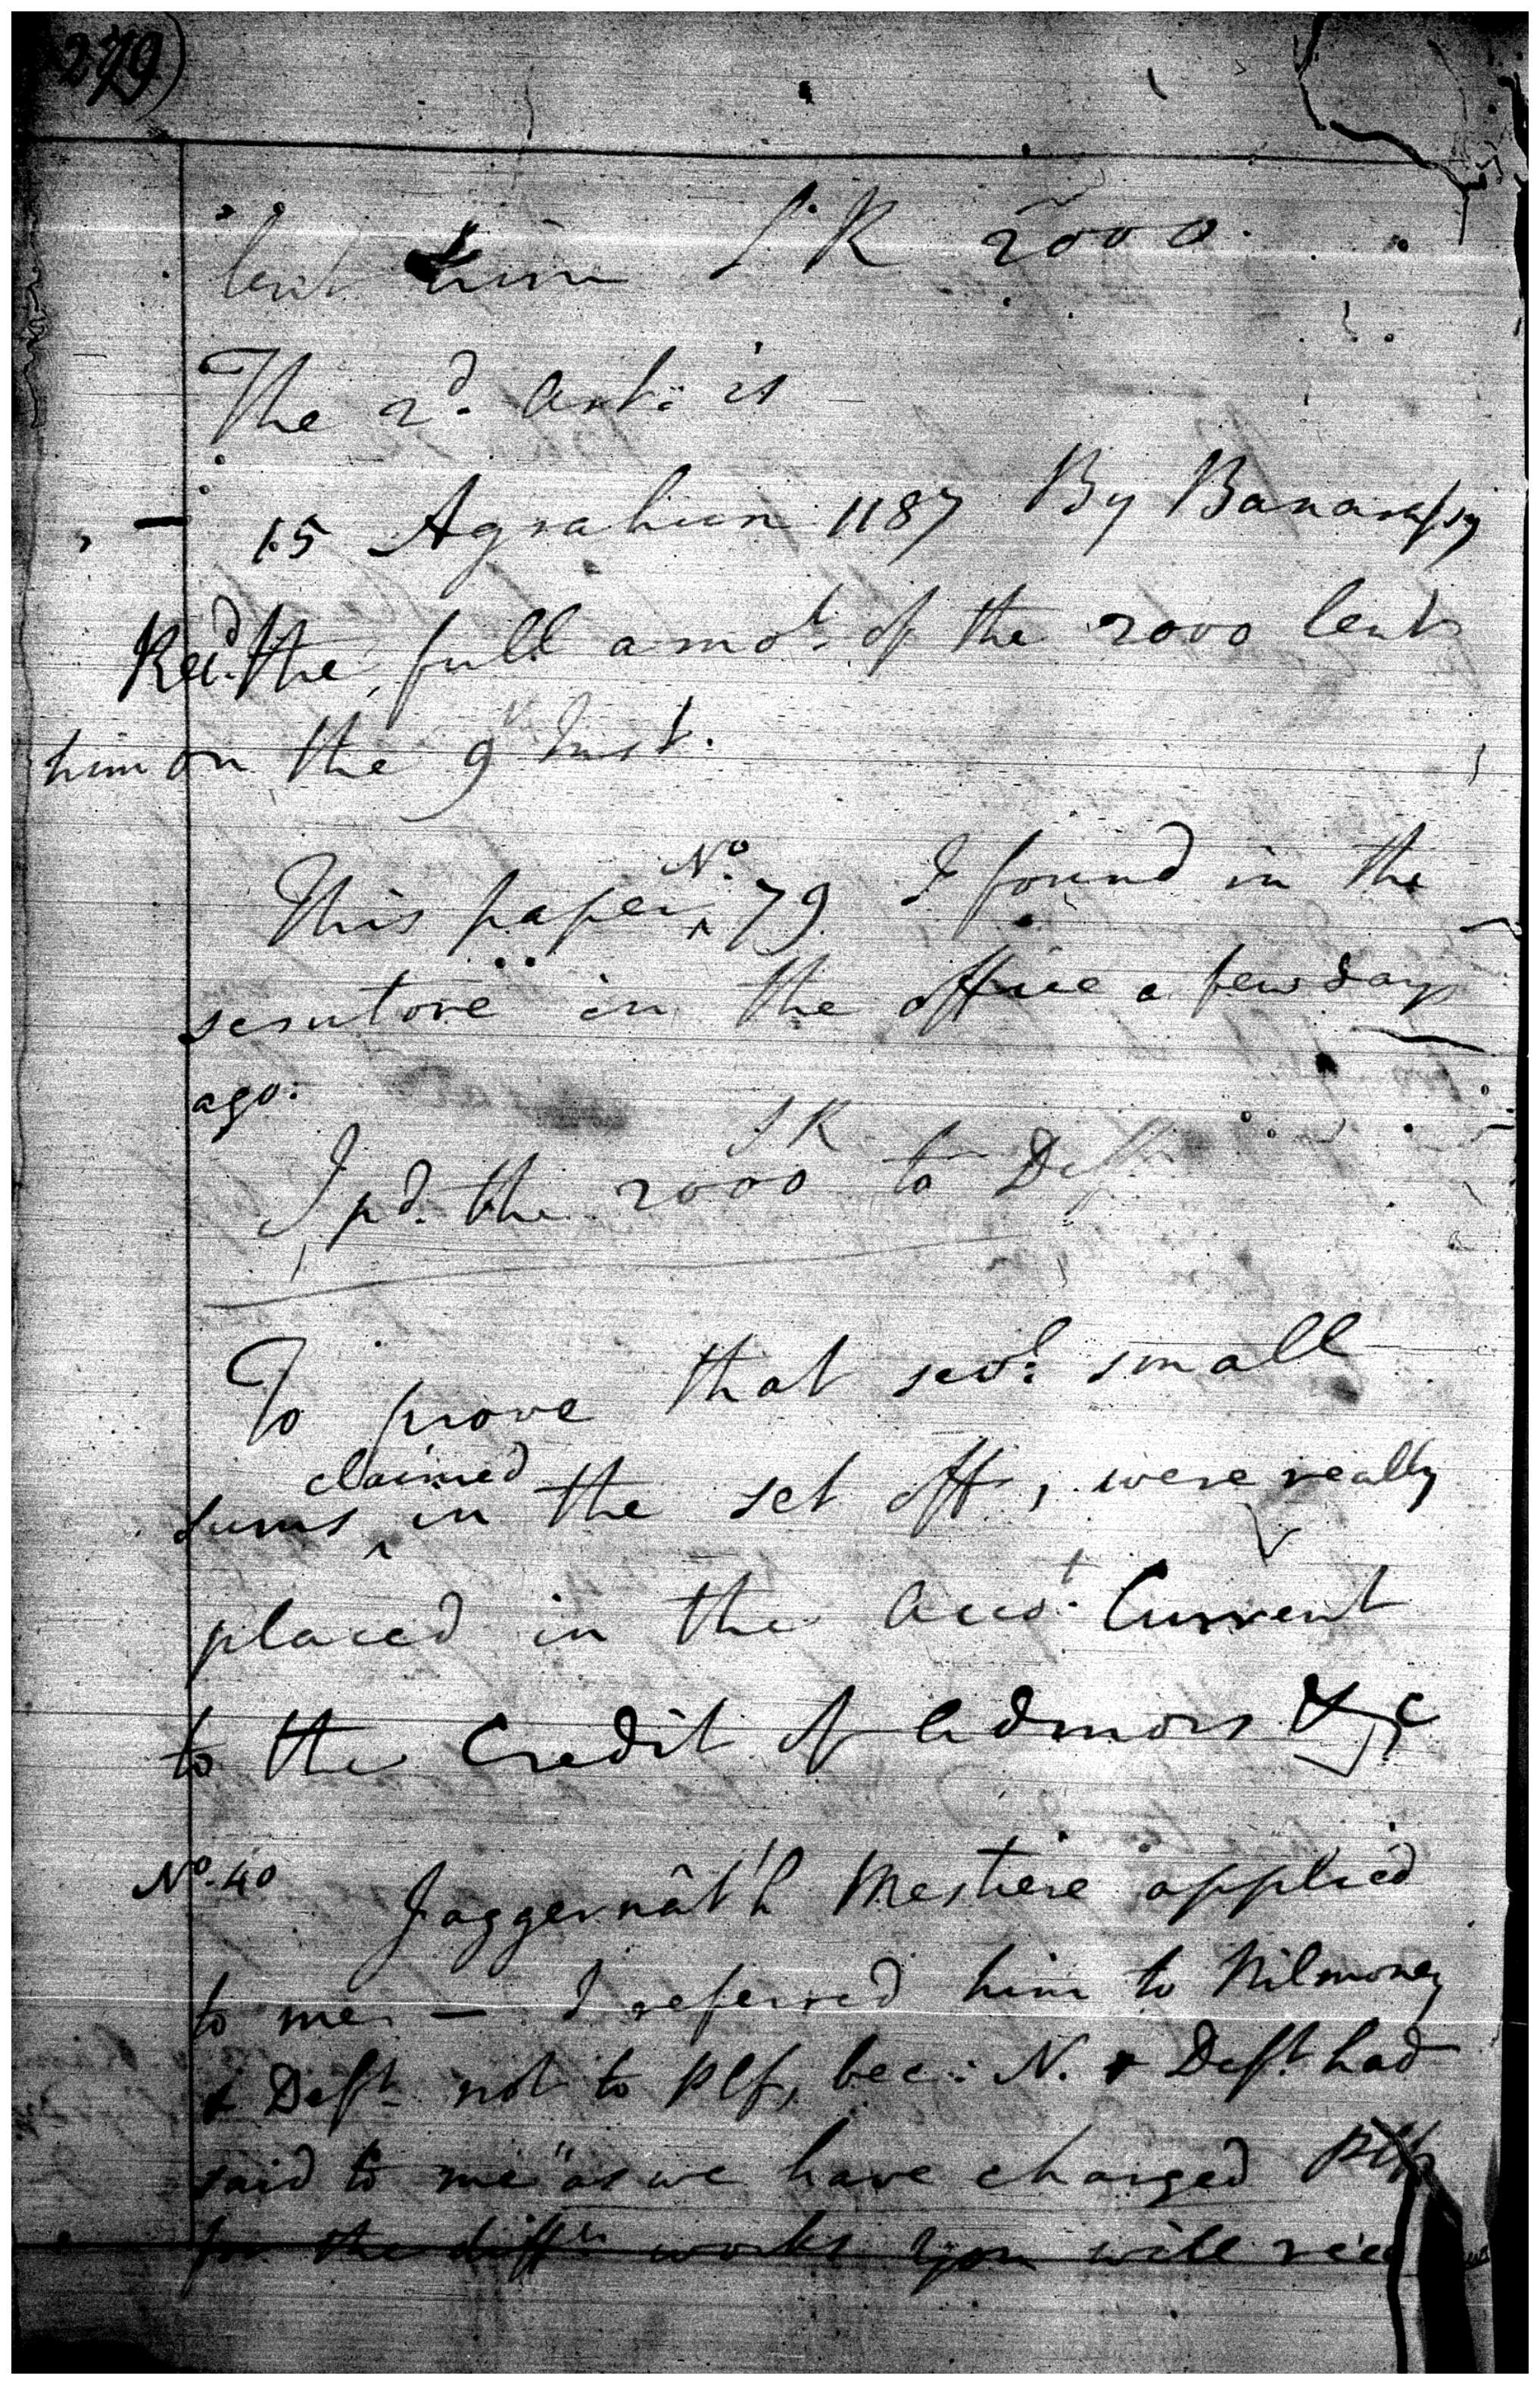 279)
lent him S.R 2000.
The 2d. Art: is
15 Agrahun 1187 By
Recd. the full amot. of the 2000 lent
him on the 9 Inst.
This paper No. 79 I found in the
scrutore in the office a few days
ago.
I pd. the SR 2000 to Deft
To prove that sevl. small
sums claimed in the set off, were really
placed in the Accot. Current
to the Credit of Admors &c
No. 40 Jaggernât'h Mestree applied
to me — I referred him to Nilmoney
& Deft. not to Plf, bec: N. & Deft. had
said to me "as we have charged Plf
for the difft. works you will